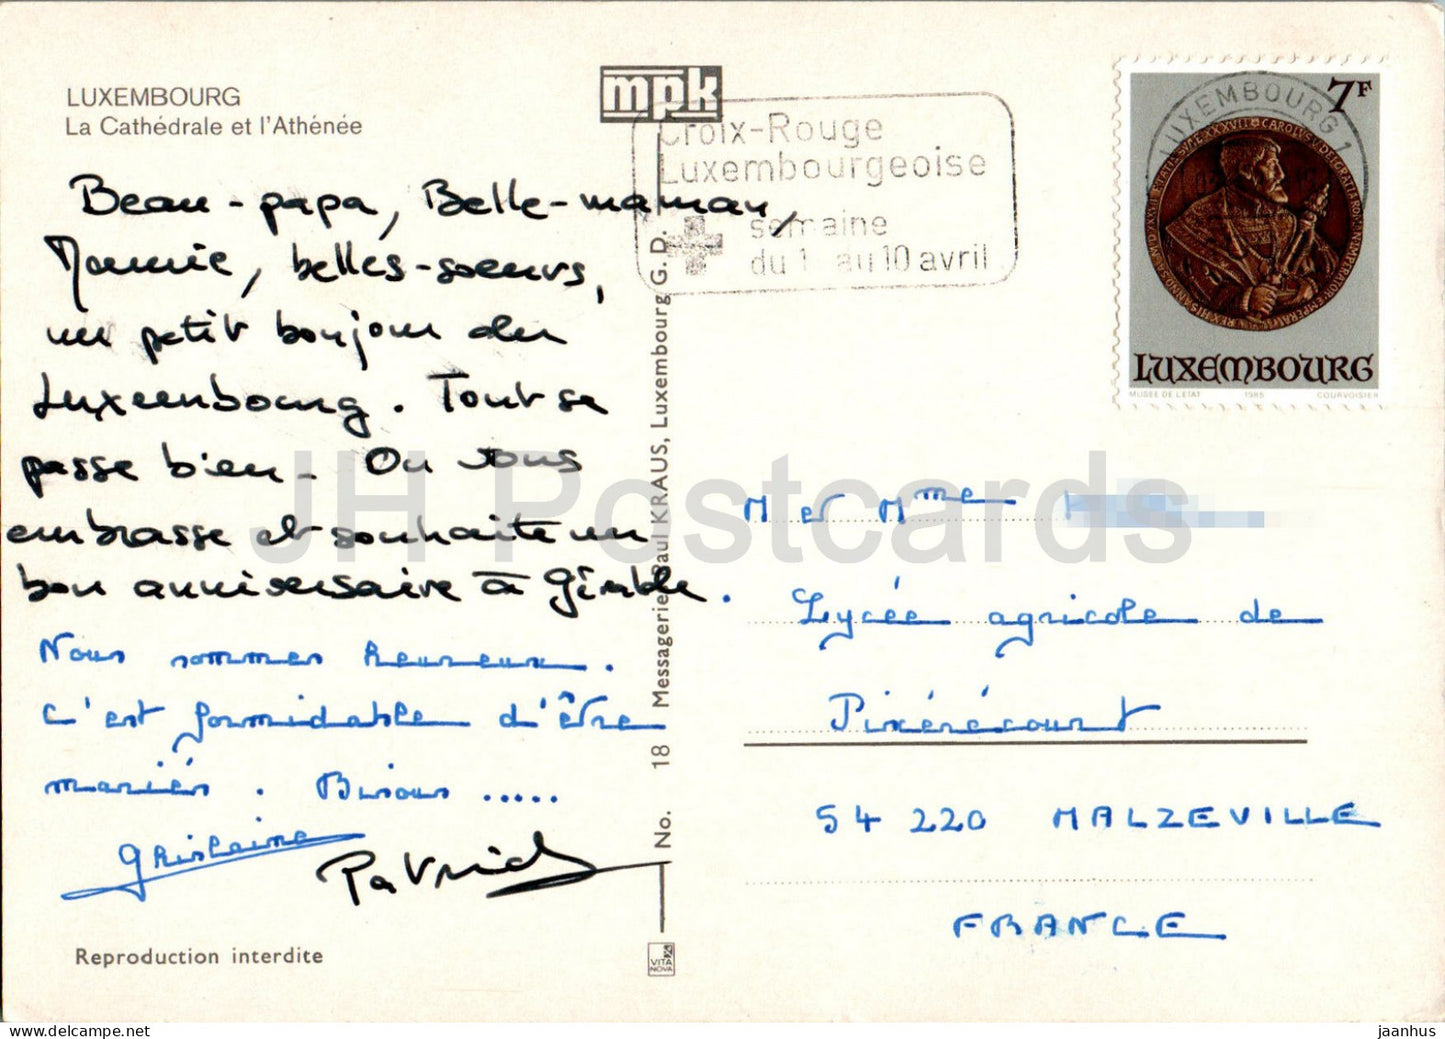 LUXEMBOURG
La Cathédrale et l'Athénée
mpk
Croix-Rouge
Luxembourgeoise
semaine
du 1 au 10 avril
LUXEMBOURG 1
7F
CAROLVS V
LUXEMBOURG
MUSÉE DE L'ETAT 1985 COURVOISIER
Beau-papa, Belle-maman,
Mamie, belles-soeurs,
un petit bonjour du
Luxembourg. Tout se
passe bien. On vous
embrasse et souhaite un
bon anniversaire à
Nous sommes heureux.
C'est formidable d'être
mariés. Bisous .....
Ghislaine
Patrick
Reproduction interdite
No. 18 Messagerie Paul KRAUS, Luxembourg G. D.
VITA
NOVA
M et Mme
Lycée agricole de
Pixérécourt
54 220 MALZEVILLE
FRANCE
JH Postcards
jaanhus